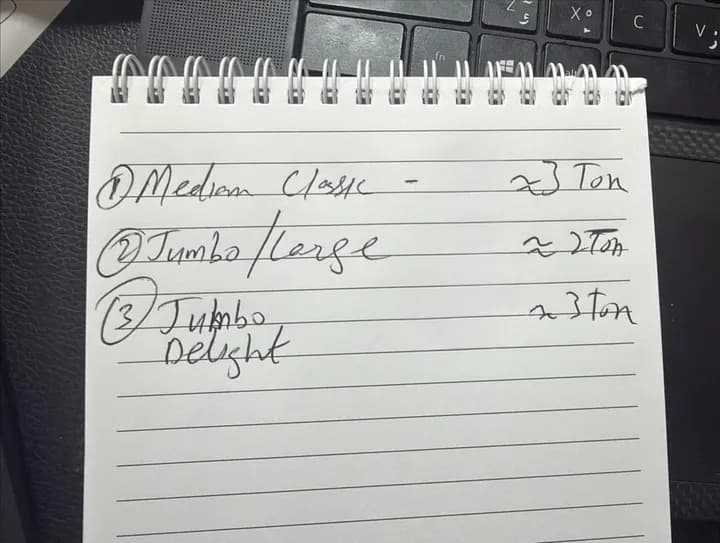 ① Mediam Classic - ≈3 Ton
② Jumbo/Large ≈ 2Ton
③ Jumbo ≈ 3 Ton
Delight
Z
X
C
V
fn